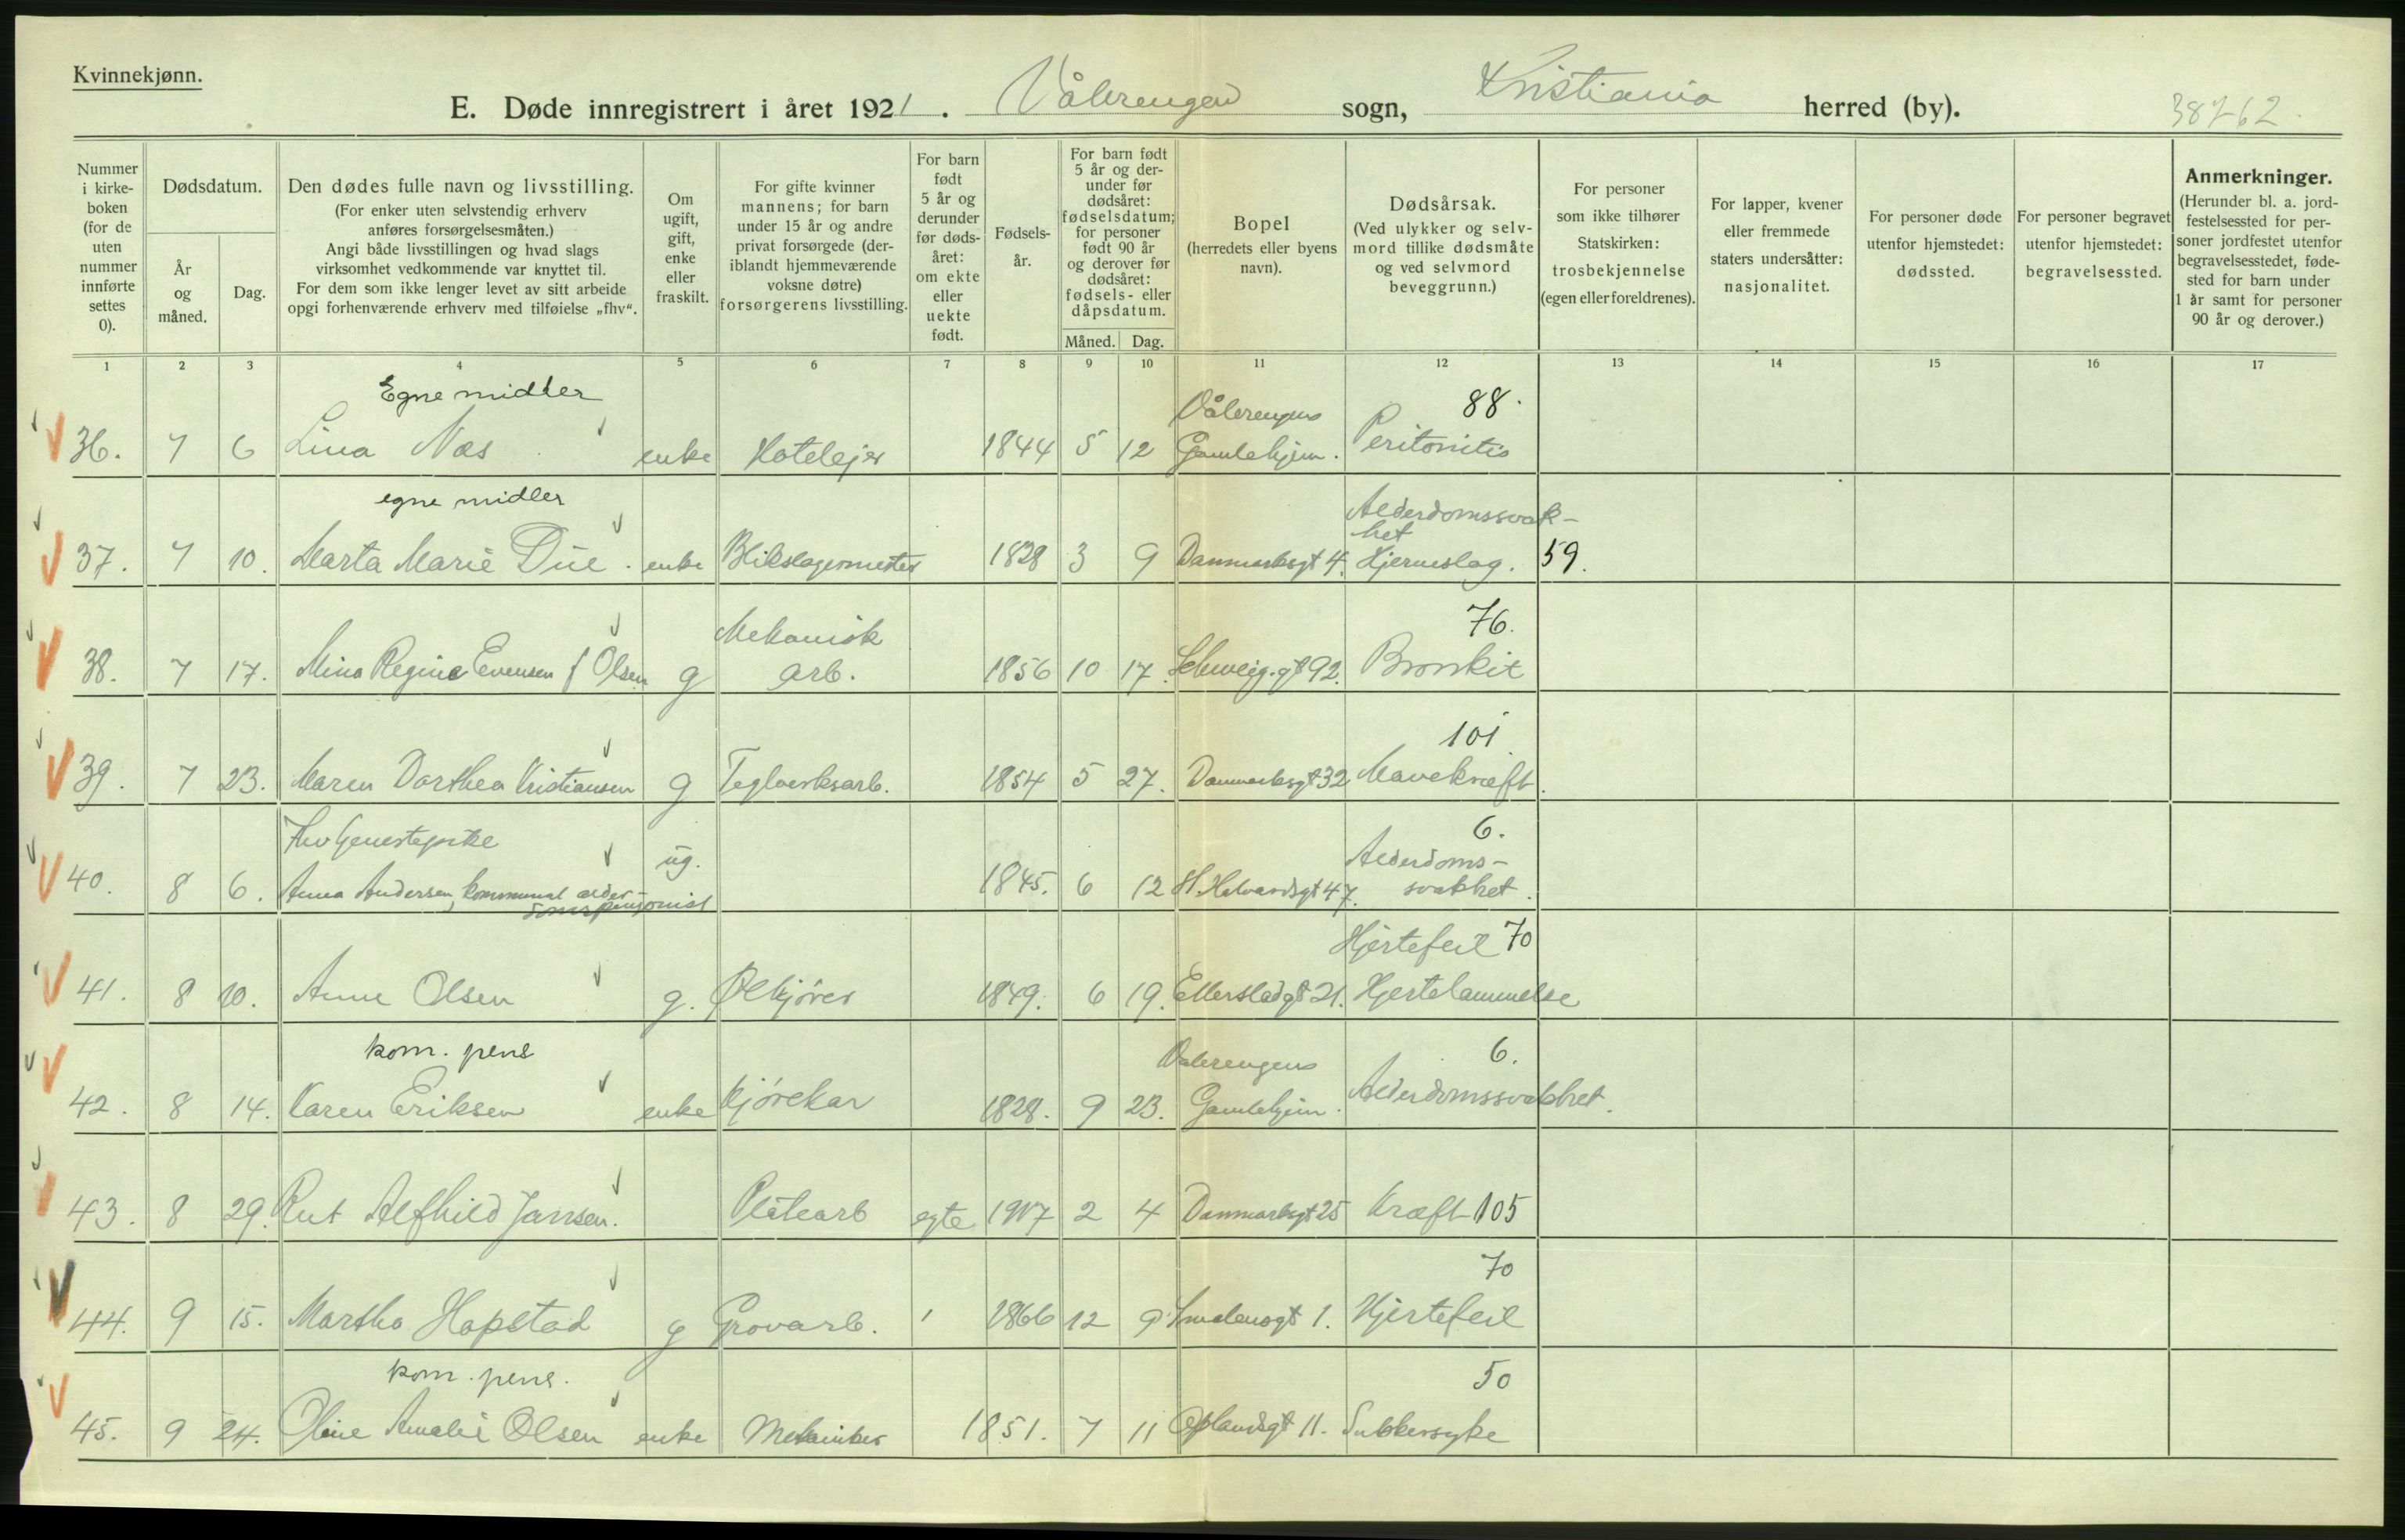 Kvinnekjønn.
E. Døde innregistrert i året 1921. Vålerengen sogn, Kristiania herred (by).
38762.
Nummer i kirke- boken (for de uten nummer innførte settes 0).
Dødsdatum.
År og måned.
Dag.
Den dødes fulle navn og livsstilling.
(For enker uten selvstendig erhverv anføres forsørgelsesmåten.)
Angi både livsstillingen og hvad slags virksomhet vedkommende var knyttet til.
For dem som ikke lenger levet av sitt arbeide opgi forhenværende erhverv med tilføielse „fhv“.
Om ugift, gift, enke eller fraskilt.
For gifte kvinner mannens; for barn under 15 år og andre privat forsørgede (der- iblandt hjemmeværende voksne døtre) forsørgerens livsstilling.
For barn født 5 år og derunder før døds- året: om ekte eller uekte født.
Fødsels- år.
For barn født 5 år og der- under før dødsåret: fødselsdatum; for personer født 90 år og derover før dødsåret: fødsels- eller dåpsdatum.
Måned. Dag.
Bopel (herredets eller byens navn).
Dødsårsak.
(Ved ulykker og selv- mord tillike dødsmåte og ved selvmord beveggrunn.)
For personer som ikke tilhører Statskirken: trosbekjennelse (egen eller foreldrenes).
For lapper, kvener eller fremmede staters undersåtter: nasjonalitet.
For personer døde utenfor hjemstedet: dødssted.
For personer begravet utenfor hjemstedet: begravelsessted.
Anmerkninger.
(Herunder bl. a. jord- festelsessted for per- soner jordfestet utenfor begravelsesstedet, føde- sted for barn under 1 år samt for personer 90 år og derover.)
1 2 3 4 5 6 7 8 9 10 11 12 13 14 15 16 17
Egne midler Vålerengens 88.
36. 7 6 Lina Næs enke Hotelejer 1844 5 12 Gamlehjem. Peritonitis
egne midler Alderdomssvak-
het
37. 7 10. Marta Marie Due. enke Blikslagermester 1828 3 9 Danmarksgt 4. Hjerneslag. 59.
Mekanisk 76.
38. 7 17. Mina Regine Evensen f Olsen g arb. 1856 10 17. Schweig.gt 92. Bronkit
101
39. 7 23. Maren Dorthea Kristiansen g Teglverksarb. 1854 5 27. Danmarksgt 32 Mavekræft.
Fhv tjenestepike 6.
ug. Alderdoms-
40. 8 6. Anna Andersen, kommunal alder- 1845. 6 12 H. Halvardsgt 47. svakhet.
domspensjonist
Hjertefeil 70
41. 8 10. Anne Olsen g. Ølkjører 1849. 6 19. Ellerslædgt 21. Hjertelammelse
kom. pens Vålerengens 6.
42. 8 14. Karen Eriksen enke Kjørekar 1828. 9 23. Gamlehjem. Alderdomssvakhet.
43. 8 29. Rut Alfhild Jansen. Platearb egte 1917 2 4 Danmarksgt 25 Kræft 105
70
44. 9 15. Martha Hopstad g Grovarb. 1866 12 9 Smalensgt 1. Hjertefeil
kom. pens. 50
45. 9 24. Oline Amalie Olsen enke Mekaniker 1851. 7 11 Oplandsgt 11. Sukkersyke